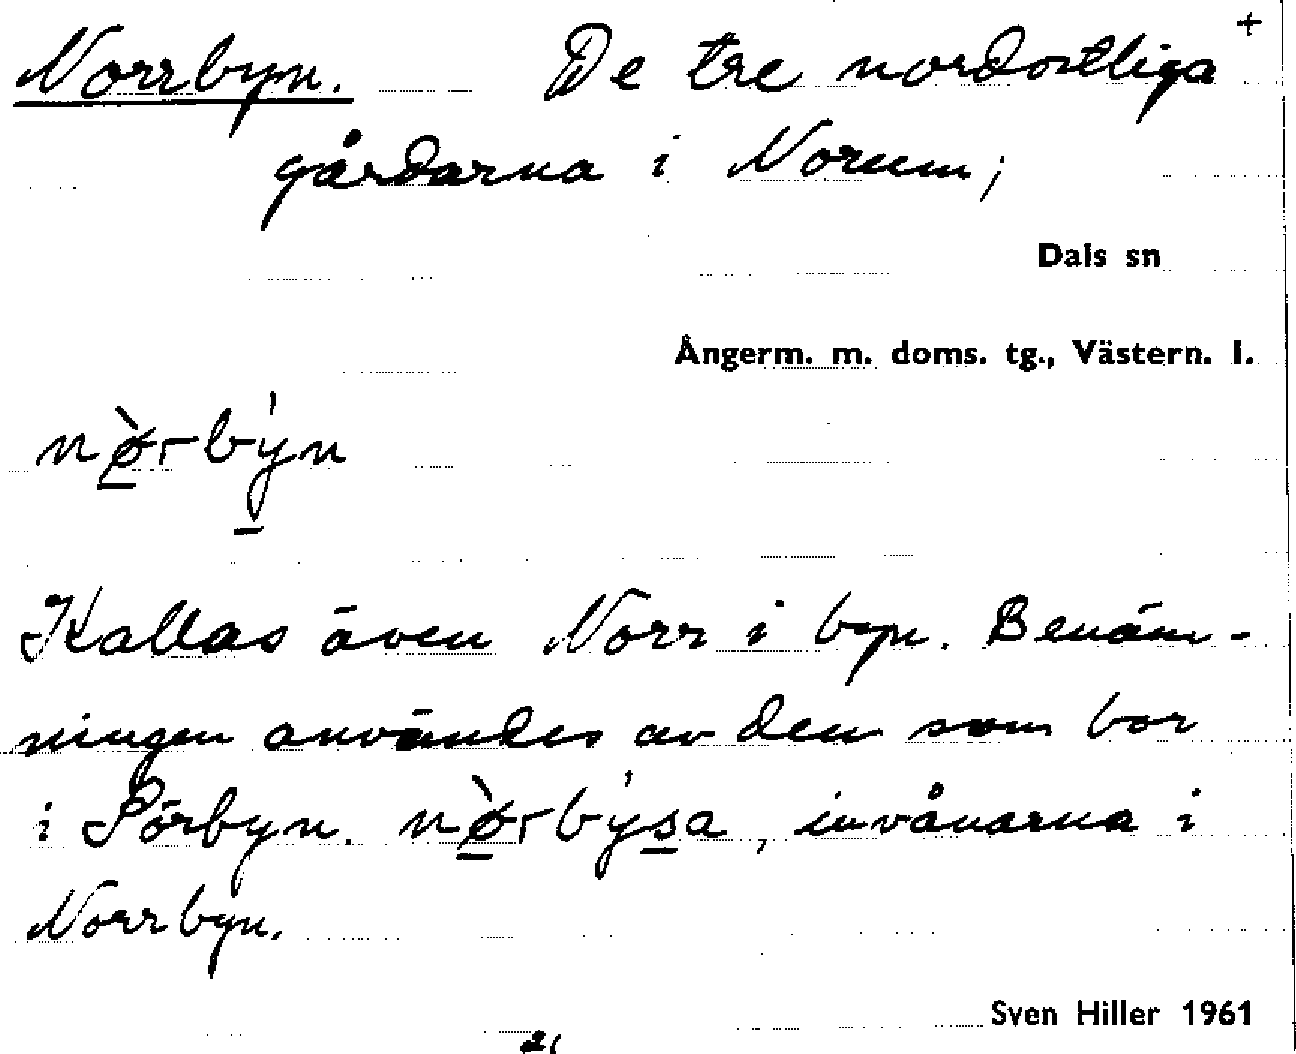 Norrbyn. De tre nordostliga +
gårdarna i Norum;
Dals sn
Ångerm. m. doms. tg., Västern. l.
nø̀r-býn
Kallas även Norr i byn. Benäm-
ningen användes av den som bor
i Sörbyn. nø̀r-býsa, invånarna i
Norrbyn.
Sven Hiller 1961
21